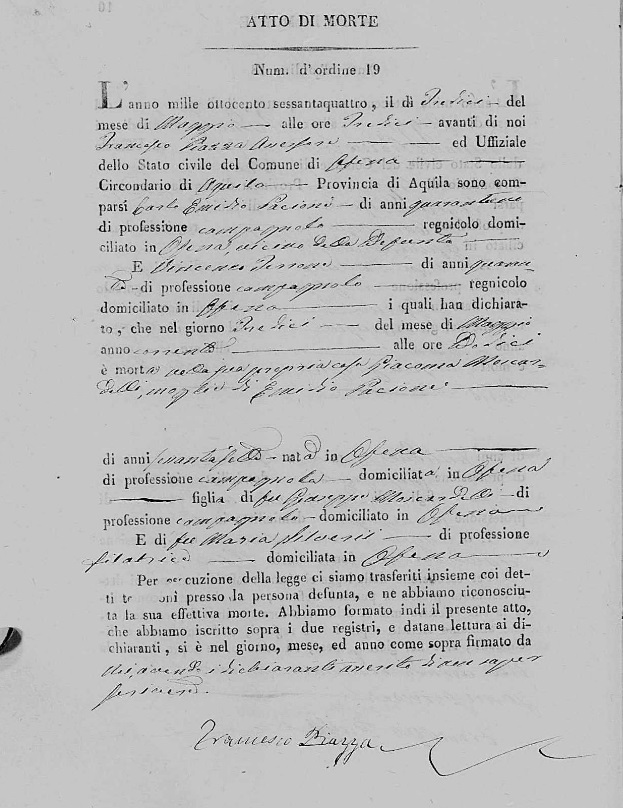 ATTO DI MORTE
Num. d'ordine 19
L'anno mille ottocento sessantaquattro, il di Tredici del
mese di Maggio alle ore Tredici avanti di noi
Francesco Piazza Assessore ed Uffiziale
dello Stato civile del Comune di Ofena
Circondario di Aquila Provincia di Aquila sono com-
parsi Carlo Emidio Pacioni di anni quarantuno
di professione campagnolo regnicolo domi-
ciliato in Ofena, vicino della Defunta
E Vincenzo di anni quaran-
ta di professione campagnolo regnicolo
domiciliato in Ofena i quali han dichiara-
to, che nel giorno Tredici del mese di Maggio
anno corrente alle ore Dodici
è morta nella sua propria casa Giacoma Moscar-
delli, moglie di Emidio Pacioni
di anni nata in Ofena
di professione campagnola domiciliata in Ofena
figlia di fu Giuseppe Moscardelli di
professione campagnolo domiciliato in Ofena
E di fu Maria Silveri di professione
filatrice domiciliata in Ofena
Per esecuzione della legge ci siamo trasferiti insieme coi det-
ti presso la persona defunta, e ne abbiamo riconosciu-
ta la sua effettiva morte. Abbiamo formato indi il presente atto,
che abbiamo iscritto sopra i due registri, e datane lettura ai di-
chiaranti, si è nel giorno, mese, ed anno come sopra firmato da
noi, avendo i dichiaranti asserito di non saper
scrivere.
Francesco Piazza